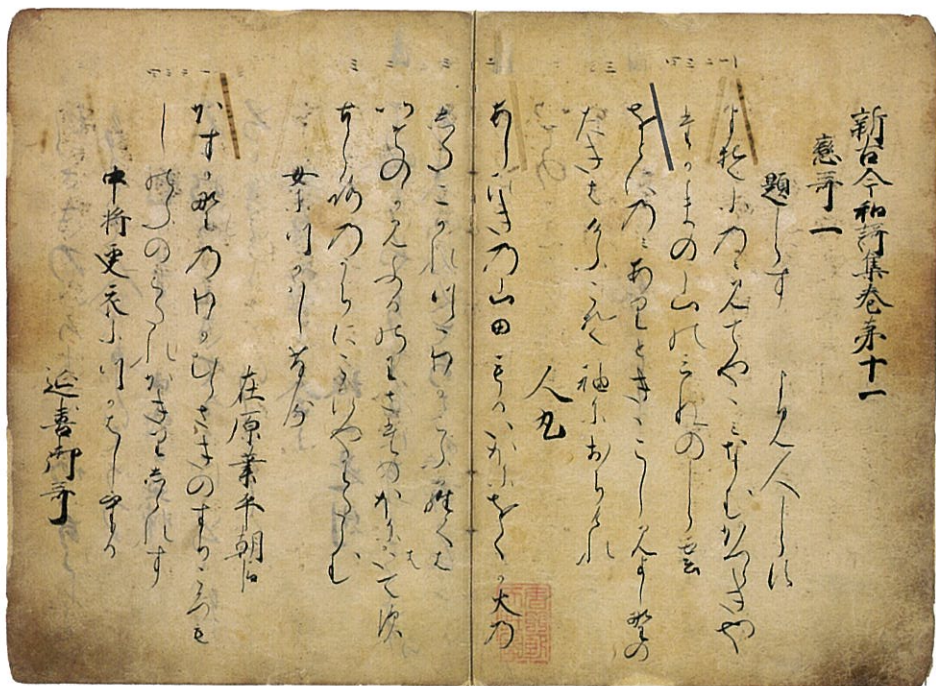 新古今和謌集巻第十一
戀哥一
題しらす　よみ人しらす
よそにのみ見てやゝみなむかつらきや
たかまの山のみねのしら雲
をとにのみありときゝこしみよし野の
たきはけふこそ袖におちけれ
人丸
あしひきの山田もるいほにをくか火の
したこかれつゝわかこふらくは
いその神ふるのわさ田のほにはいてす
心のうちにこひやわたらむ
女につかはしける
在原業平朝臣
かすか野のわかむらさきのすり衣
しのふのみたれかきりしられす
中将更衣につかはしける
延喜御哥